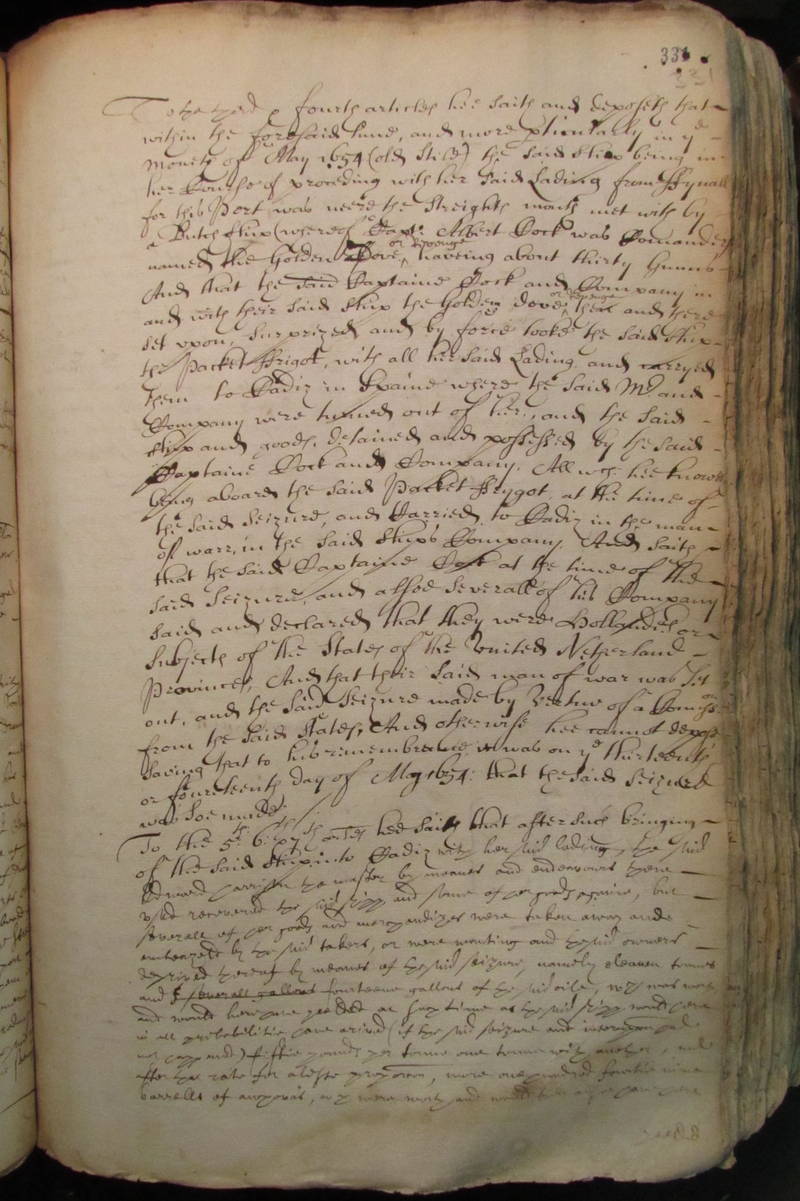 331
To the third & fourth articles hee saith and deposeth that
within the foresaid time, and more pticularly in ye
Moneth of May 1654 (old Stile) the said ship being in
her Course of proceeding with her said Lading from
for this Port was neere the Streights mouth met with by
a Dutch ship (whereof Capt: Albert Cock was Comander
named the Golden Dove, haveing about thirty Gunns
or Revenge
And that the said Captaine Cock and Company in
and with their said ship the Golden dove, then and there
or Revenge
set upon, surprized and by force tooke the said ship
the Packet Frigot, with all her said Lading and carryed
them to Cadiz in Spaine where the said Mr and
Company were turned out of her, and the said
ship and goods, detained and possessed by the said
Captaine Cock and Company. All wch hee knoweth
being aboard the said Packet Frygot at the time of
the said Seizure, and Carried to Cadiz in the man
of warr, in the said ships Company. And saith
that the said Captaine Cock at the time of the
said Seizure, and alsoe severall of his Company
said and declared that they were Hollanders or
Subjects of the States of the United Netherland
Provinces, And that their said man of war was set
out, and the said Seizure made by Vertue of a Comission
from the said States, And otherwise hee cannot depose
Saving that to his rimembrance it was on ye thirteenth
or fourteenth day of May 1654: that the said Seizure
was soe made.
To the 5th 6th & 7th arles hee saith that after such bringing
of the said ship into Cadiz with her said lading, the said
Edward the master by meanes and endeavours there
used recovered the said shipp and some of her goods againe, but
severall of her goods and merchandizes were taken away and
embeazeled by the said takers, or were wanting and the said owners
deprived thereof by meanes of the said seizure, namely eleaven tonnes
and severall gallons fourteene gallons of the said oile, wch was worth
and would have at such time as the said shipp would have
in all probabilitie have arived (if the said seizure and
not happened) fiftie pounds per tonne one tonne with another, and
after the rate for a lesse proporcon, more one hundred fourtie nine
barrells of anchovis, wch were worth and would